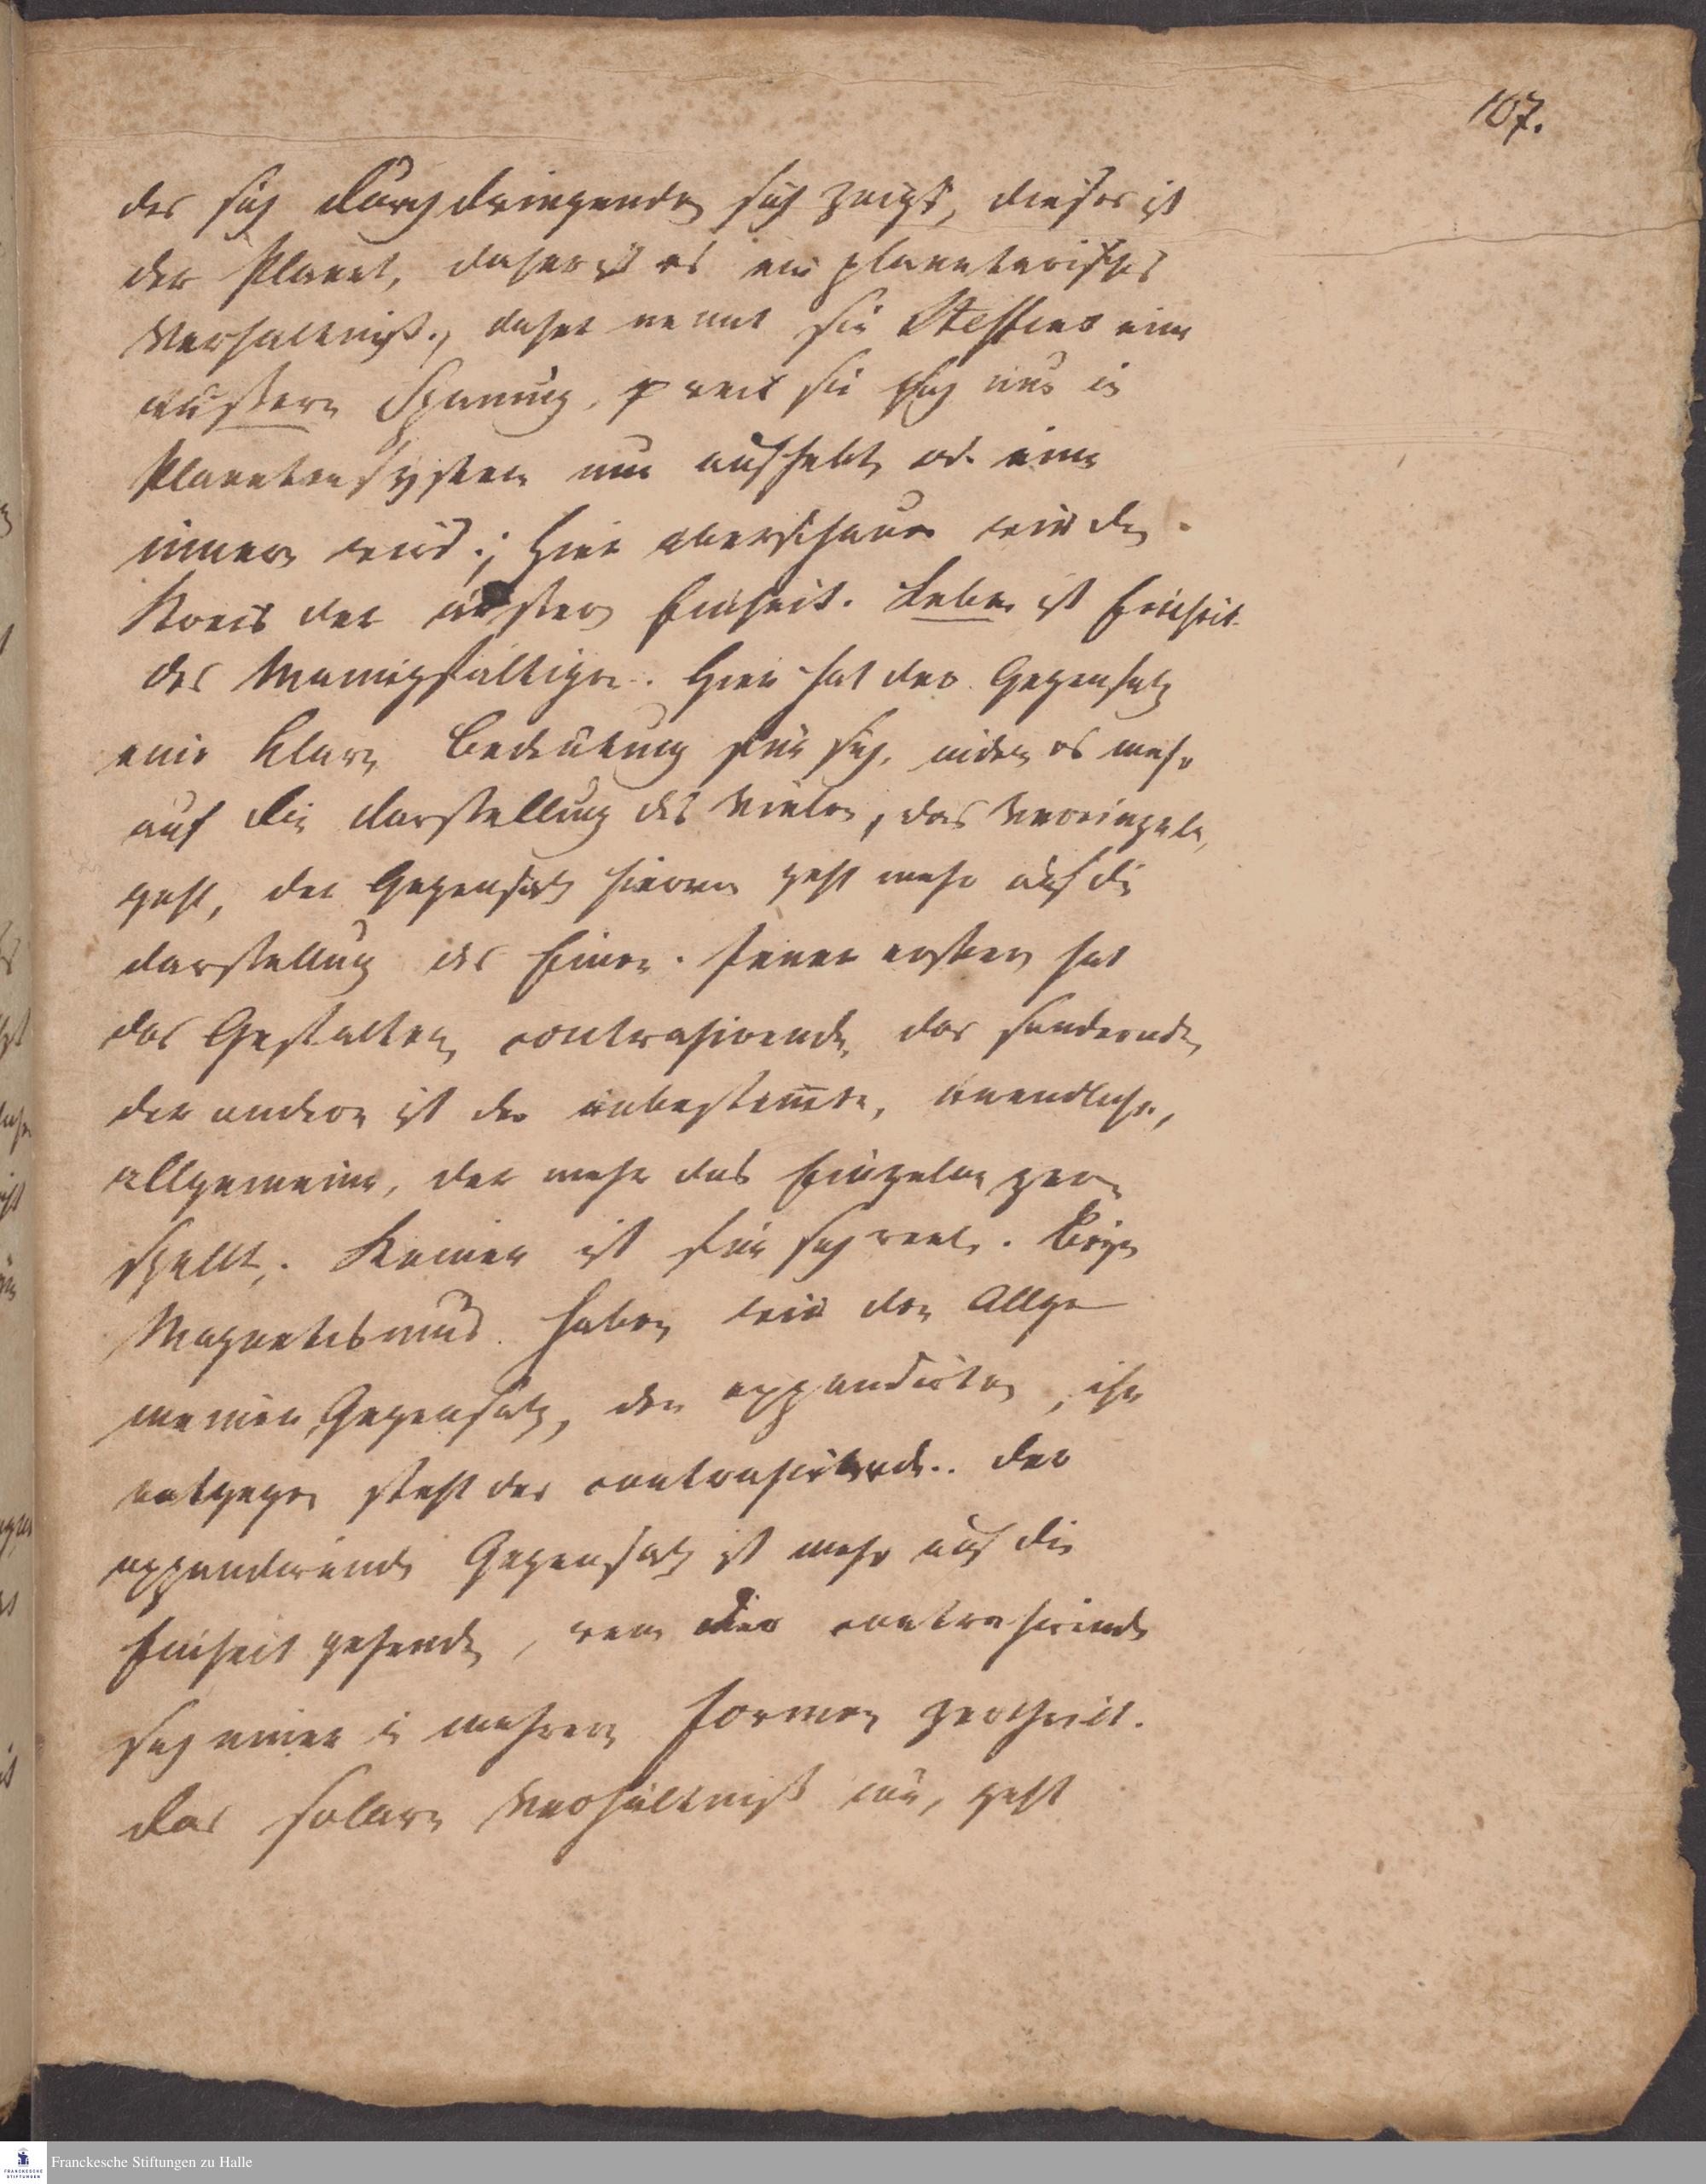 107.
des sich durchdringenden sich zeigt, dieses ist
der Planet, daher ist es ein planetarisches
Verhältniß., daher nennt sie Steffens eine
äußere Spannung, weil sie sich nur in
Planetensystem nur aufhebt, od. eine
innere wird.; Hier überschauen wir den
Kreis der äußern Einheit. Leben ist Freiheit
des Mannigfaltigen. Hier hat der Gegensatz
eine klare Bedeutung für sich, indem es mehr
auf die Darstellung des Vielen, des Vereinzeln,
geht, der Gegensatz hievon geht mehr auf die
Darstellung des Einen. Jener erstere hat
das Gestalten contrahirende, das sondernde,
der andere ist der unbestimte, unendliche,
allgemeine, der mehr das Einzelne zer-
spellt. Keiner ist für sich reel. Beym
Magnetismus haben wir den Allge
meinen Gegensatz, den expandirten, ihm
entgegen steht der contrahirende. Der
expandirende Gegensatz ist mehr auf die
Einheit gehende, der contrahirende
sich immer in mehrere Formen zertheilt.
Das solare Verhältniß nur, geht
Franckesche Stiftungen zu Halle